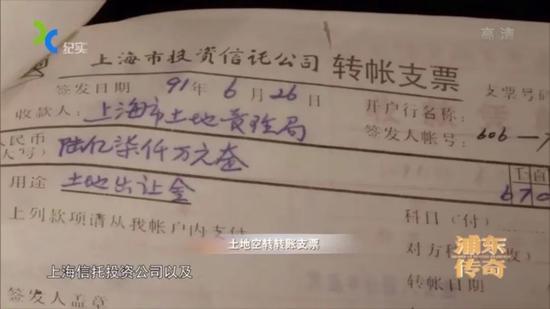 纪实
高清
上海市投资信託公司 转帐支票
支票号码
签发日期 91年6月26日
开户行名称:
收款人:上海市土地管理局
签发人帐号:606—
民币
大写) 陆亿柒仟万元整
千百
670
用途 土地出让金
上列款项请从我帐户内支付
科目(付)
土地空转转账支票
对方科 收)
浦东
传奇
上海信托投资公司以及
转帐日期
签发人盖章